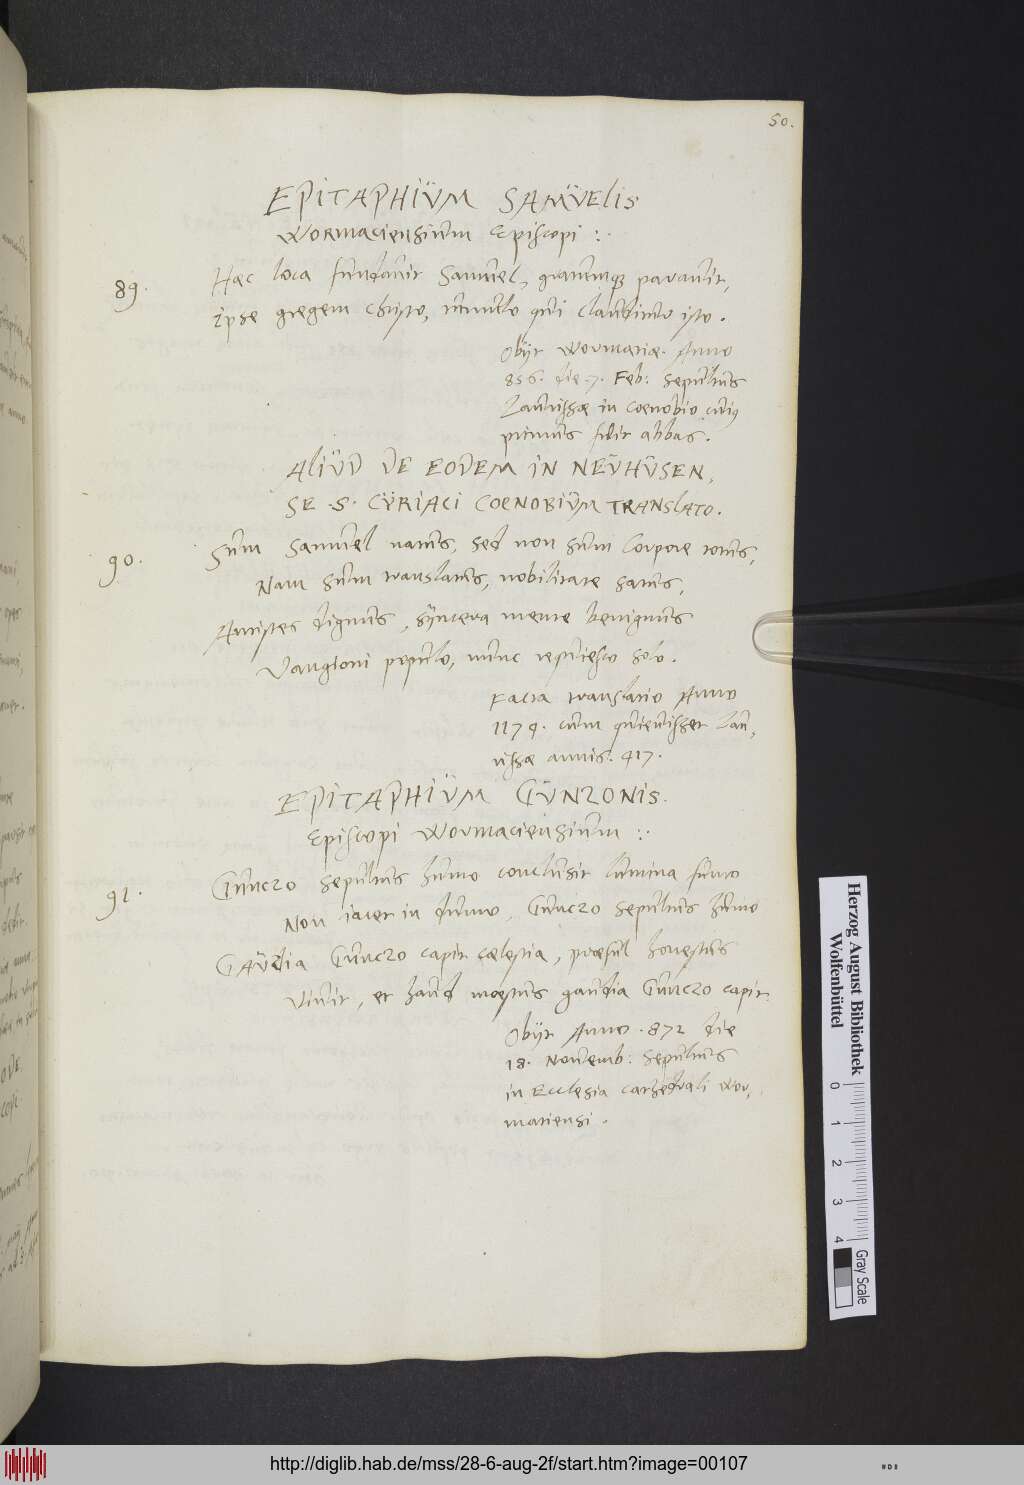 50.
EPITAPHIŬM SAMŬELIS
WORMACIENSIŬM Episcopi :.
89. Hæc loca fŭndaŭit Samŭel, graŭemq; paraŭit,
Ipse gregem Christo, tŭmŭlo qŭi claŭditŭr isto.
Obijt Wormatiæ. Anno
856. die .7. Feb: Sepŭltŭs
Laŭrissæ in coenobio cŭiŭs
primŭs fŭit abbas.
ALIŬD DE EODEM IN NEŬHŬSEN,
SE .S. CYRIACI COENOBIŬM TRANSLATO.
90. Sŭm Samŭel natŭs, sed non sŭm Corpore totŭs,
Nam sŭm translatŭs, nobilitate satŭs,
Antistes dignŭs, sÿncera mente benignŭs
Vangioni popŭlo, nŭnc reqŭiesco solo.
Facta translatio Anno
1174. cŭm qŭieŭisset Laŭ,
rissæ annis. 417.
EPITAPHIŬM GŬNZONIS.
Episcopi Wormaciensiŭm :.
91. Gŭnczo sepŭltŭs hŭmo conclŭsit lŭmina fŭmo
Non iacet in dŭmo, Gŭnczo sepŭltŭs hŭmo
GAŬDia Gŭnczo capit cælestia, præsŭl honestŭs
Viŭit, et haŭd mœstŭs gaŭdia Gŭnczo capit.
Obijt Anno .872 die
18. Novemb: Sepŭltŭs
in Ecclesia cathedrali Wor,
matiensi.
Herzog August Bibliothek
Wolfenbüttel
0 1 2 3 4
Gray Scale
http://diglib.hab.de/mss/28-6-aug-2f/start.htm?image=00107